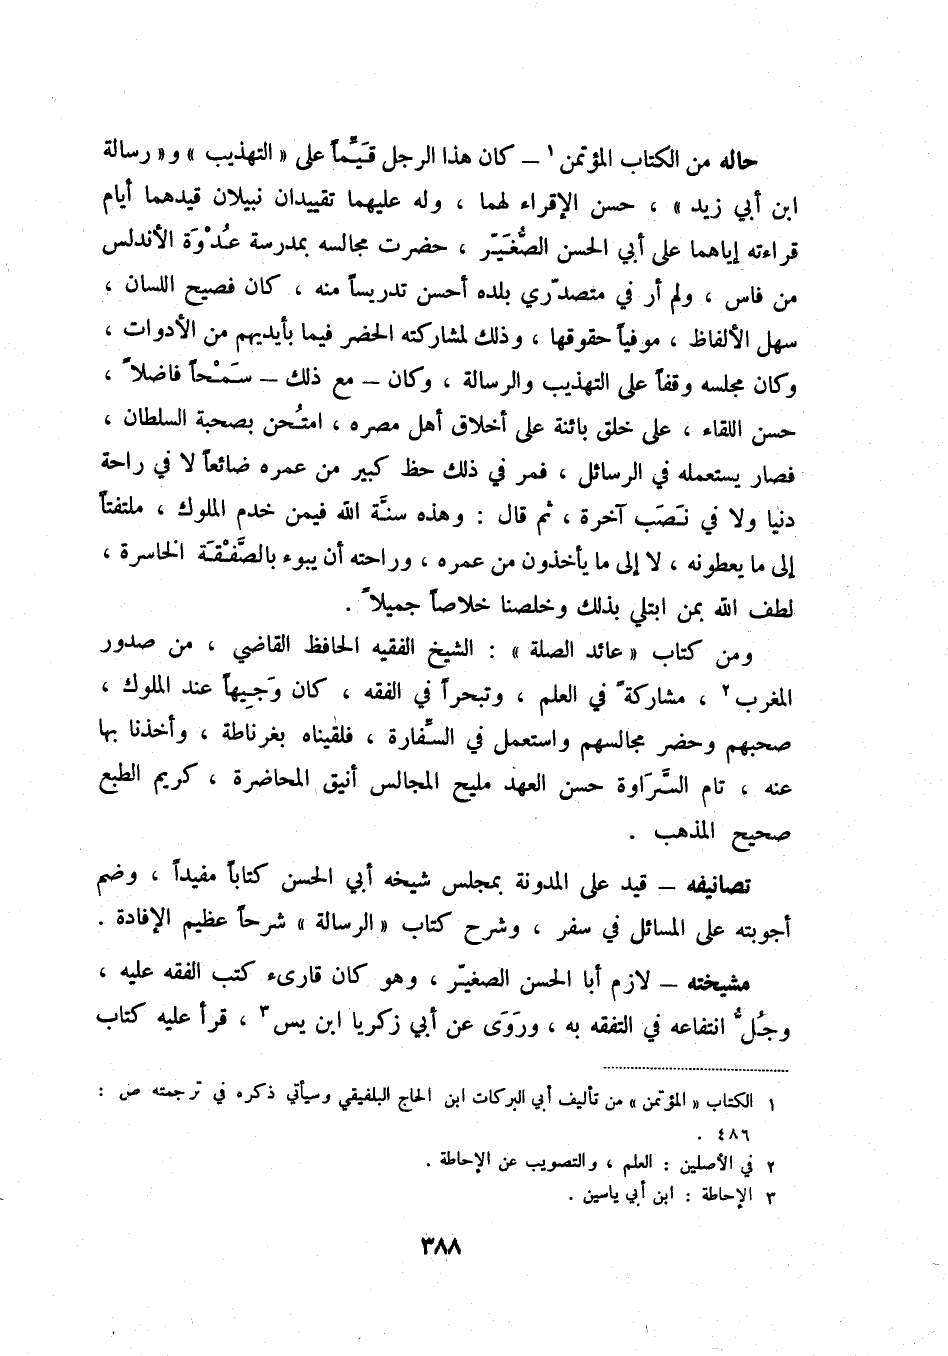 حاله من الكتاب المؤتمن ١ – كان هذا الرجل قَيِّماً على « التهذيب » و « رسالة
ابن أبي زيد » ، حسن الإقراء لهما ، وله عليهما تقييدان نبيلان قيدهما أيام
قراءته إياهما على أبي الحسن الصُّغَيّر ، حضرت مجالسه بمدرسة عُدْوَة الأندلس
من فاس ، ولم أر في متصدّري بلده أحسن تدريساً منه ، كان فصيح اللسان ،
سهل الألفاظ ، موفياً حقوقها ، وذلك لمشاركته الحضر فيما بأيديهم من الأدوات ،
وكان مجلسه وقفاً على التهذيب والرسالة ، وكان – مع ذلك – سَمْحاً فاضلاً ،
حسن اللقاء ، على خلق بائنة على أخلاق أهل مصره ، امتُحن بصحبة السلطان ،
فصار يستعمله في الرسائل ، فمر في ذلك حظ كبير من عمره ضائعاً لا في راحة
دنيا ولا في نَصَب آخرة ، ثم قال : وهذه سنَّة الله فيمن خدم الملوك ، ملتفتاً
إلى ما يعطونه ، لا إلى ما يأخذون من عمره ، وراحته أن يبوء بالصَّفْقَة الخاسرة ،
لطف الله بمن ابتلي بذلك وخلصنا خلاصاً جميلاً .
ومن كتاب « عائد الصلة » : الشيخ الفقيه الحافظ القاضي ، من صدور
المغرب ٢ ، مشاركةً في العلم ، وتبحراً في الفقه ، كان وَجِيهاً عند الملوك ،
صحبهم وحضر مجالسهم واستعمل في السِّفارة ، فلقيناه بغرناطة ، وأخذنا بها
عنه ، تام السَّرَاوة حسن العهد مليح المجالس أنيق المحاضرة ، كريم الطبع
صحيح المذهب .
تصانيفه – قيد على المدونة بمجلس شيخه أبي الحسن كتاباً مفيداً ، وضم
أجوبته على المسائل في سفر ، وشرح كتاب « الرسالة » شرحاً عظيم الإفادة .
مشيخته – لازم أبا الحسن الصغيّر ، وهو كان قارىء كتب الفقه عليه ،
وجُلُّ انتفاعه في التفقه به ، ورَوَى عن أبي زكريا ابن يس ٣ ، قرأ عليه كتاب
١ الكتاب « المؤتمن » من تأليف أبي البركات ابن الحاج البلفيقي وسيأتي ذكره في ترجمته ص :
٤٨٦ .
٢ في الأصلين : العلم ، والتصويب عن الإحاطة .
٣ الإحاطة : ابن أبي ياسين .
٣٨٨